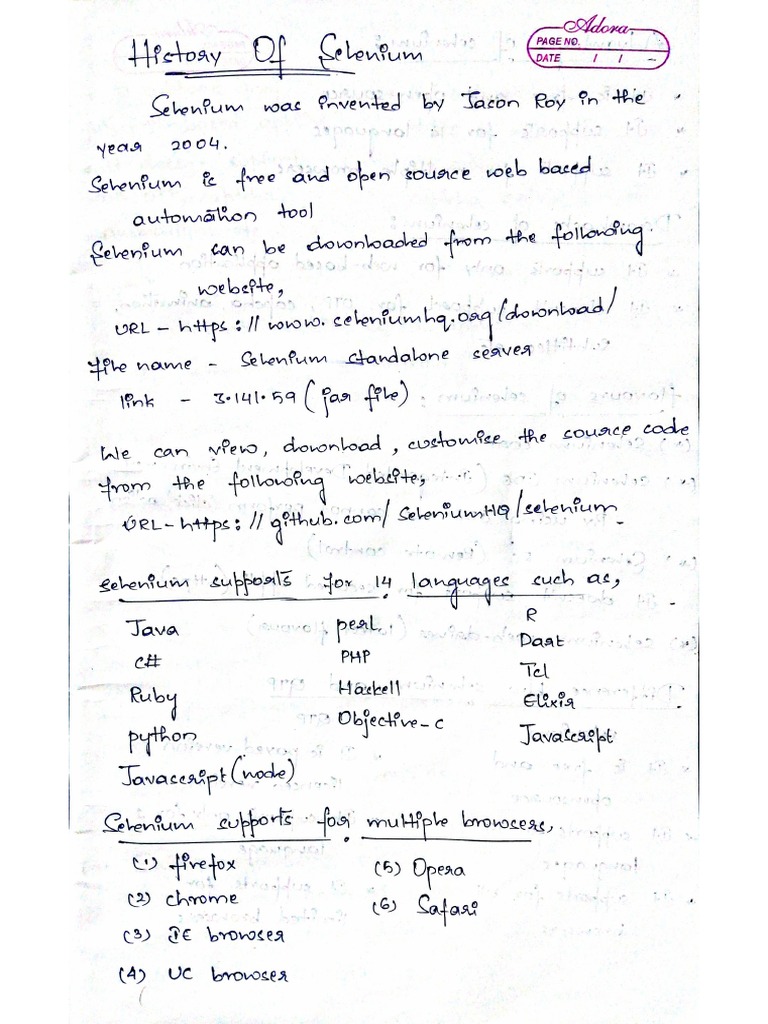 Adora
PAGE NO.
DATE / /
History Of Selenium
Selenium was invented by Jacon Roy in the
year 2004.
Selenium is free and open source web based
automation tool
Selenium can be downloaded from the following
website,
URL - https://www.seleniumhq.org/download/
File name - Selenium standalone server
link - 3.141.59 (jar file)
We can view, download, customise the source code
from the following website,
URL - https://github.com/SeleniumHQ/selenium
Selenium supports for 14 languages such as,
Java perl R
C# PHP Dart
Ruby Haskell Tcl
python Objective-c Elixir
Javascript (node) Javascript
Selenium supports for multiple browsers,
(1) firefox (5) Opera
(2) chrome (6) Safari
(3) IE browser
(4) UC browser